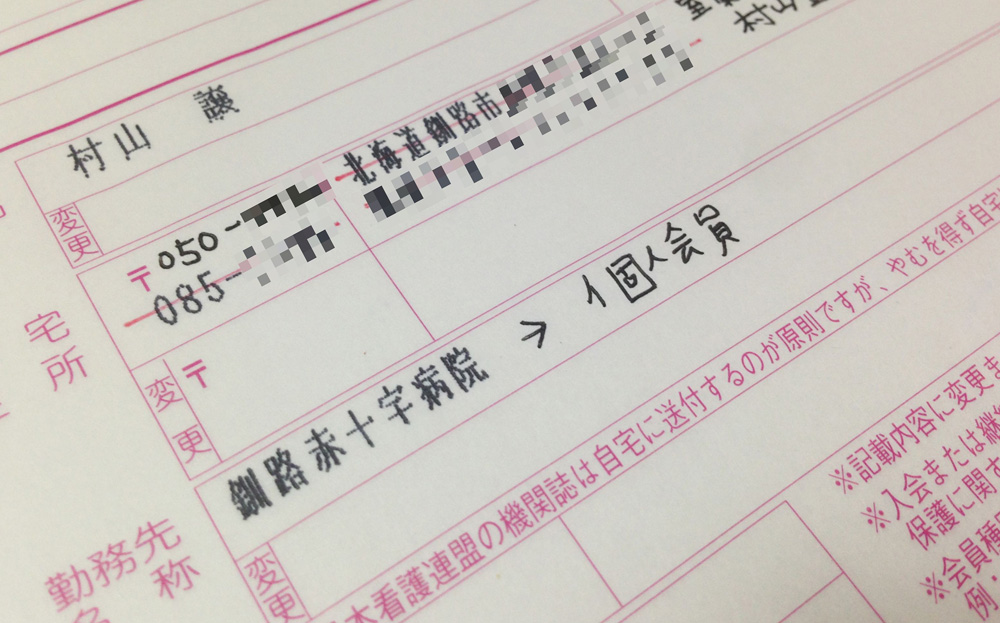 村山 譲
変更
宅
所
〒050-
085-
北海道釧路市
村山
変更
〒
釧路赤十字病院 → 個人会員
勤務先
名称
変更
本看護連盟の機関誌は自宅に送付するのが原則ですが、やむを得ず自宅
※記載内容に変更ま
※入会または継続
保護に関す
※会員種
例・